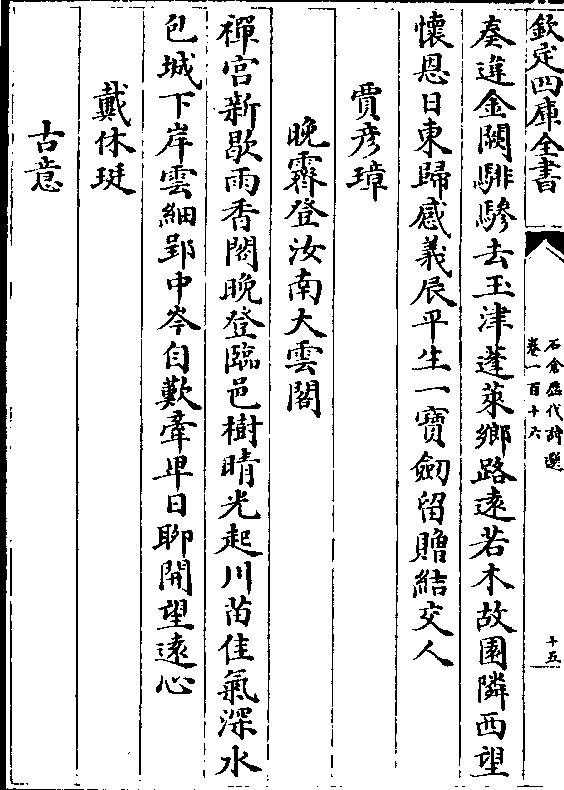 欽定四庫全書
石倉歷代詩選
卷一百十六
十五
奏違金闕騑驂去玉津蓬萊鄉路遠若木故園隣西望
懷恩日東歸感義辰平生一寶劒留贈結交人
賈彥璋
晚霽登汝南大雲閣
禪宫新歇雨香閣晚登臨邑樹晴光起川苗佳氣深水
包城下岸雲細郢中岑自歎牽卑日聊開望遠心
戴休珽
古意